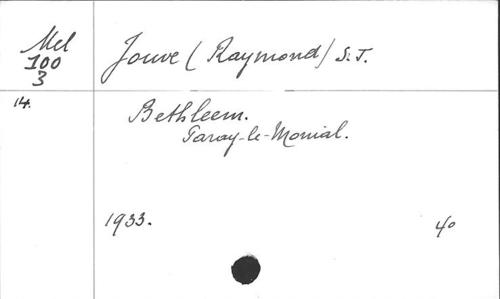 Mel
100
3
Jouve (Raymond) S.J.
14.
Bethleem.
Paray-le-Monial.
1933.
4°